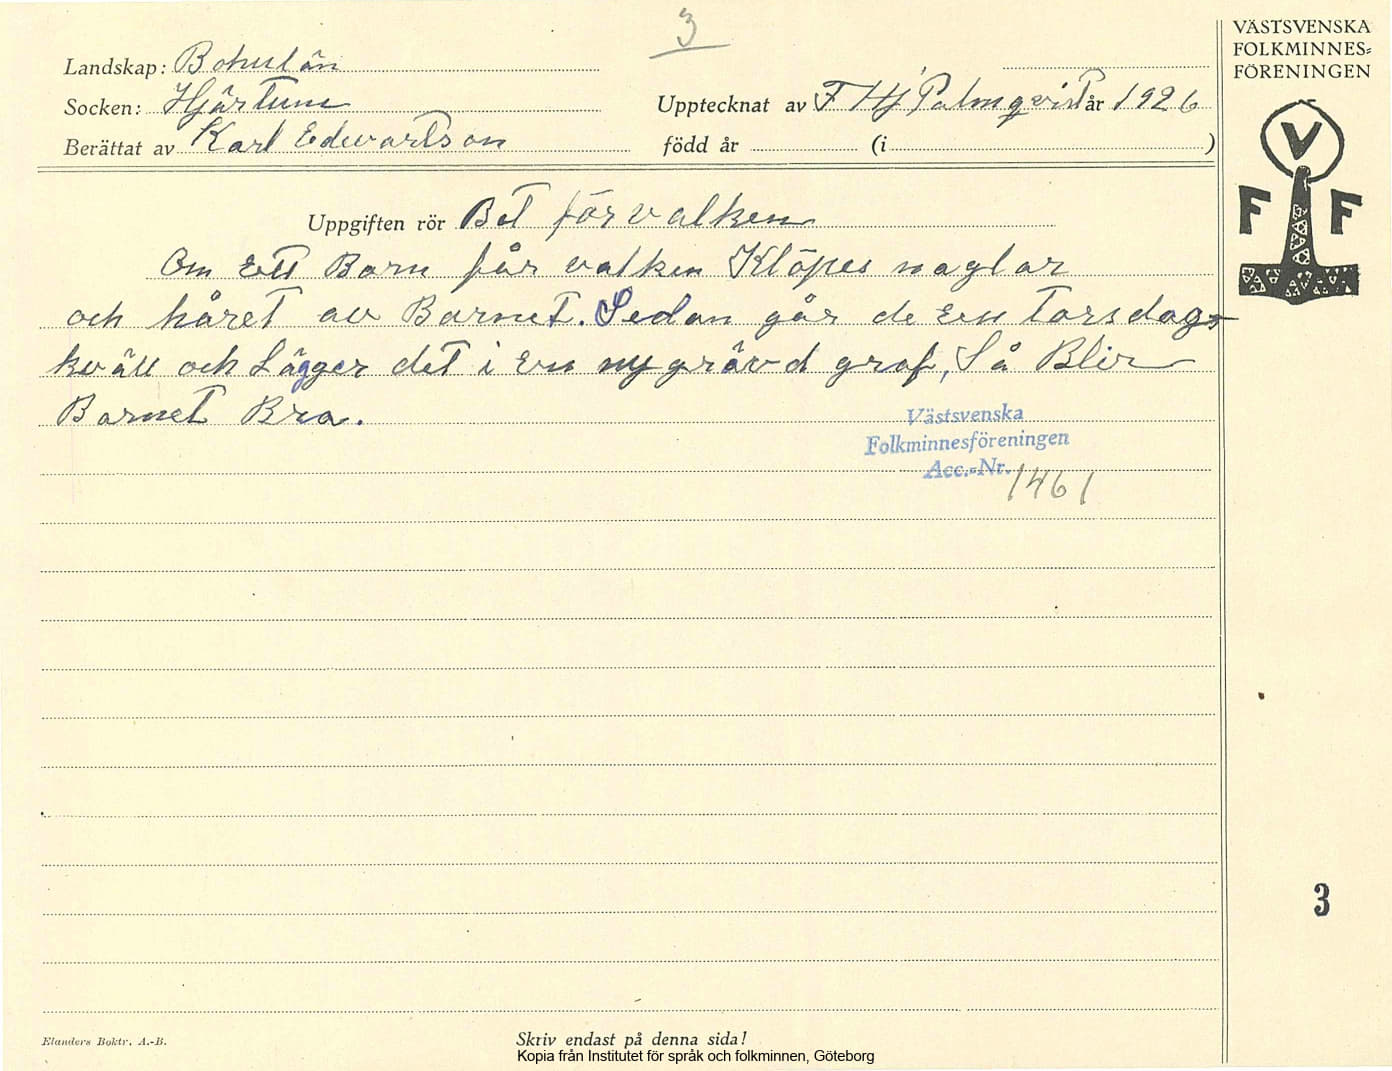 3
VÄSTSVENSKA
FOLKMINNES-
FÖRENINGEN
Landskap: Bohuslän
Socken: Hjärtum
Upptecknat av F Hj Palmqvist år 1926
Berättat av Karl Edwartson
född år (i )
V
F F
Uppgiften rör Bot för valken
Om Ett Barn får valken Klöpes naglar
och håret av Barnet. Sedan går de En torsdags
kväll och Lägger det i En ny grävd graf, Så Blir
Barnet Bra.
Västsvenska
Folkminnesföreningen
Acc.-Nr. 1461
3
Elanders Boktr. A.-B.
Skriv endast på denna sida!
Kopia från Institutet för språk och folkminnen, Göteborg